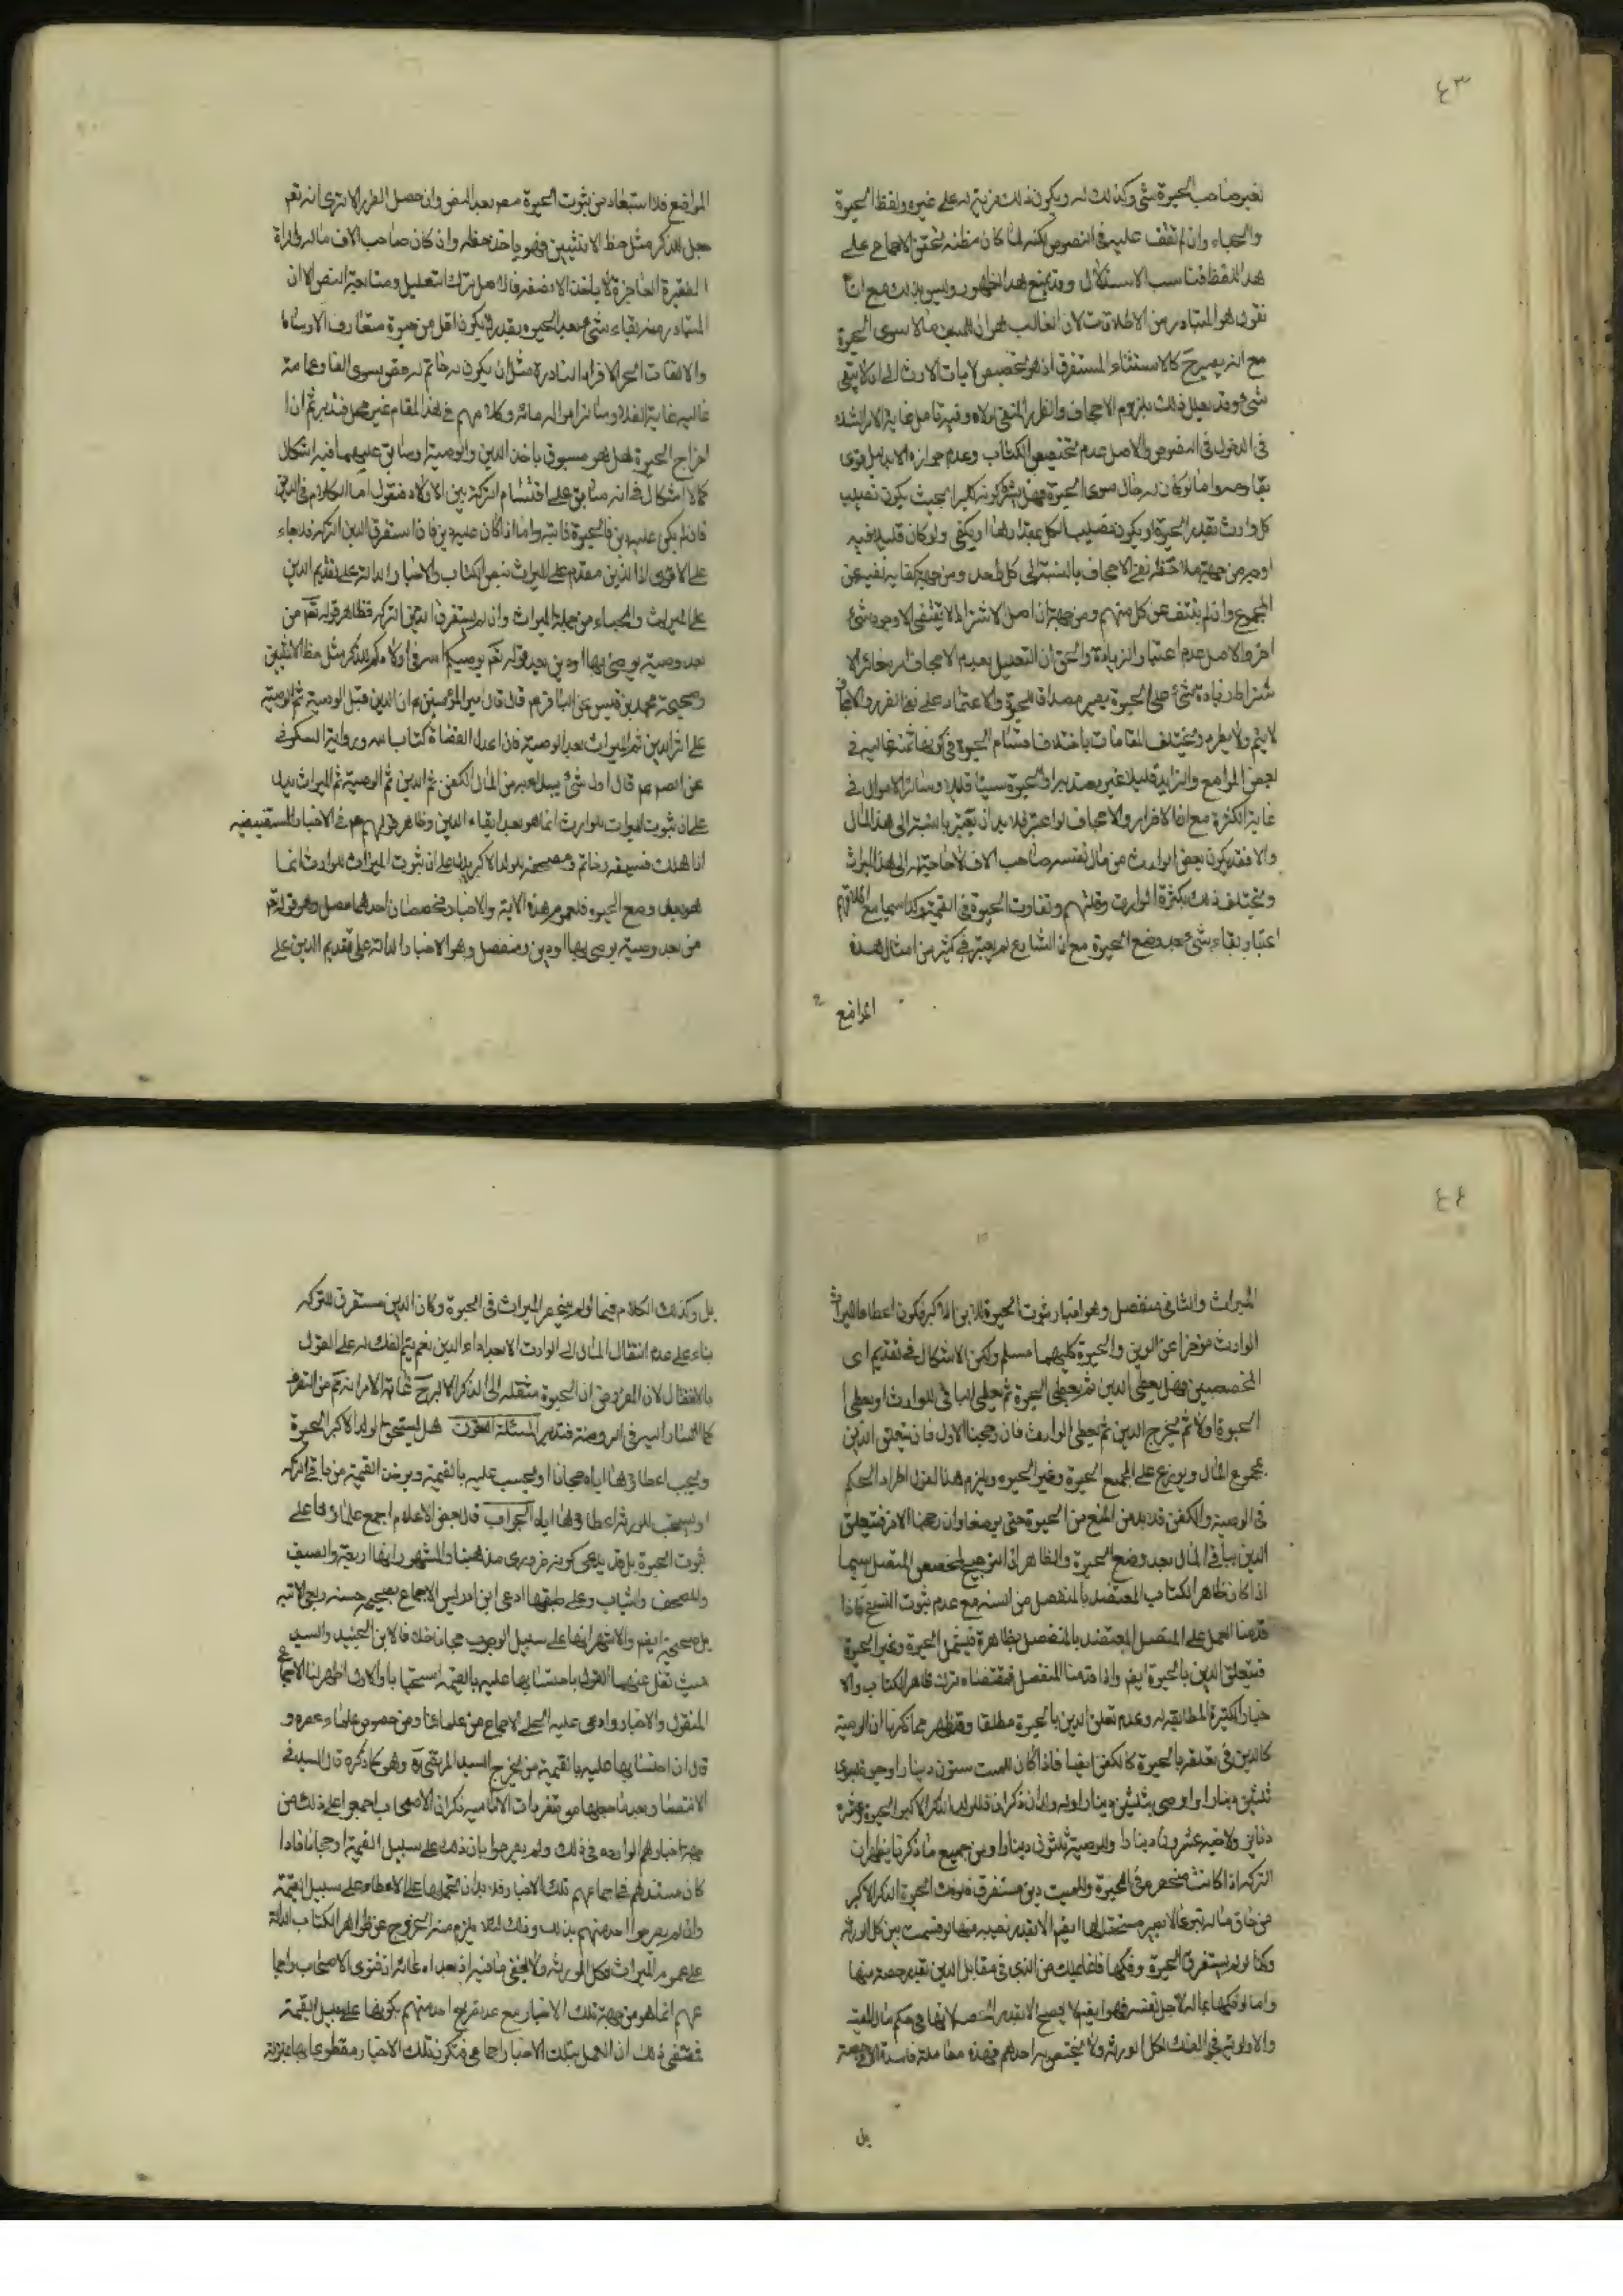 ٤٣
لغير صاحب الحبوة شئ وكذلك له ويكون ذلك مزية له على غيره ولفظ الحبوة
والحباء وان لم نقف عليه في النصوص لكنه لما كان مظنه تحقق الاجماع على
هذا اللفظ فناسب الاستدلال وقد يمنع هذا الظهور وليس بذلك مع انا
نقول هو المتبادر من الاطلاقات لان الغالب هو ان للميت مالا سوى الحبوة
مع انه يصير ح كالاستثناء المستغرق اذ هو تخصيص لايات الارث الى ان لا يبقى
شئ وقد يعلل ذلك بلزوم الاجحاف والضرر المنفي ولاه وفيه تامل غاية الامر الشك
في الدخول في النصوص والاصل عدم تخصيص الكتاب وعدم جوازه الا بدليل قوى
كل وارث بقدر الحبوة او يكون نصيب الكل بمقدارها او يكفي ولو كان قليلا فيه
اوجه من جهة ملاحظة نفي الاجحاف بالنسبة الى كل واحد ومن جهة كفايه نفيه عن
المجموع وان لم ينتف عن كل منهم ومن جهة ان اصل الاشتراط لا يقتضى الا وجود شئ
اخر والاصل عدم اعتبار الزيادة والحق ان التعليل بعدم الاجحاف
شتراط زيادة شئ على الحبوة يصير مصداقا للحبوة والاعتماد على نفي الضرر والاجحاف
لا يتم ولا يطرد ويختلف المقامات باختلاف اقسام الحبوة في كونها ثمنه غاليه في
بعض المواضع والزايد قليلا غير معتد به او الحبوة سيفا قليلا وسائر الاموال في
غاية الكثرة مع ان الاضرار والاجحاف لو اعتبر فلا بد ان يعتبر بالنسبة الى هذا المال
والا فقد يكون بعض الوارث من مال نفسه صاحب الاف لا حاجة له الى هذا الميراث
ويختلف ذلك بكثرة الوارث وقلتهم وتفاوت الحبوة في القيمة وكذا سيما مع اطلاقهم
اعتبار بقاء شئ بعد وضع الحبوة مع ان الشارع لم يعتبر في كثير من امثال هذه
المواضع
المواضع فلا استبعاد من ثبوت الحبوة مع وان حصل الضرر الا ترى انه تعم
جعل للذكر مثل حظ الانثيين فهو ياخذ حظه وان كان صاحب الاف ماله والمراة
الفقيرة العاجزة لا ياخذ الا نصفه فالاصل ترك التعليل ومتابعة النص الا ان
المتبادر منه بقاء شئ بعد الحبوه بقدر لا يكون اقل من حبوة متعارف الاوساط
والالتفات الى الافراد النادرة مثل ان يكون له خاتم له فص يسوى الفا وعمامة
غالية غاية الغلاء وسائر امواله مائه وكلامهم في هذا المقام غير محصل فتدبر ثم ان
اخراج الحبوة هل هو مسبوق باخذ الدين والوصية او سابق عليهما فيه اشكال
كما لا اشكال في انه سابق على اقتسام التركة بين الاولاد فنقول اما الكلام في الدين
فان لم يكن عليه دين فالحبوة ثابتة واما اذا كان عليه دين فاذا استغرق الدين التركه فلا حباء
على الاقوى اذا الدين مقدم على الميراث بنص الكتاب والاخبار الدالة على تقديم الدين
على الميراث والحباء من جملة الميراث وان لم يستغرق الدين التركه فظاهر قوله تعم من
بعد وصية يوصى بها او دين بعد قوله تعم يوصيكم الله في اولادكم للذكر مثل حظ الانثيين
وصحيحة محمد بن قيس عن الباقر ع قال قال امير المؤمنين ع ان الدين قبل الوصية ثم الوصية
على اثر الدين ثم الميراث بعد الوصية فان اعدل القضاة كتاب الله ورواية السكوني
عن الص ع قال اول شئ يبدء به من المال الكفن ثم الدين ثم الوصية ثم الميراث يدل
على ان ثبوت الميراث للوارث انما هو بعد ايفاء الدين وظاهر قولهم ع في الاخبار المستفيضه
اذا هلك فسيفه وخاتمه ومصحفه للولد الاكبر يدل على ان ثبوت الميراث للوارث انما
هو بعد وضع الحبوه فلعموم هذه الاية والاخبار مخصصان احدهما متصل وهو قوله تعم
من بعد وصية يوصى بها او دين ومنفصل وهو الاخبار الدالة على تقديم الدين على
٤٤
الميراث والثاني منفصل وهو اخبار ثبوت الحبوة للابن الاكبر فيكون اعطاء الميراث
الوارث مؤخرا عن الدين والحبوة كليهما مسلم ولكن الاشكال في تقديم اى
المخصصين فهل يعطى الدين ثم يعطى الحبوة ثم يعطى الباقي للوارث او يعطى
الحبوة اولا ثم يخرج الدين ثم يعطى الوارث فان رجحنا الاول فان يتعلق الدين
بمجموع المال ويوزع على الجميع الحبوة وغير الحبوه ويلزم هذا القول اطراد الحكم
في الوصية والكفن فلا بد من المنع من الحبوة حتى يوضعا وان رجحنا الاخر فيتعلق
الدين بباقي المال بعد وضع الحبوة والظاهر ان الترجيح للمخصص المتصل سيما
اذا كان ظاهر الكتاب المعتضد بالمنفصل من السنه مع عدم ثبوت النسخ فاذا
قدمنا العمل على المتصل المعتضد بالمنفصل بظاهره فيشمل الحبوة وغير الحبوة
فيتعلق الدين بالحبوة ايضم واذا قدمنا المنفصل فمقتضاه ترك ظاهر الكتاب والا
خبار الكثيرة المطابقة له وعدم تعلق الدين بالحبوة مطلقا وقد ظهر مما ذكرنا ان الوصية
كالدين في تعلقه بالحبوة كالكفن ايضا فاذا كان للميت ستون دينارا وحبوة
ثلثين دينارا واوصى بثلثين دينارا وله ولدان ذكران فللولد الذكر الاكبر الحبوة
دنانير ولاخيه عشرون دينارا وللوصية ثلثون دينارا ومن جميع ما ذكرنا يظهر ان
التركه اذا كانت منحصرة في الحبوة وللميت دين مستغرق الحبوة الذكر الاكبر
من خاق ماله تبرعا لا يصير مستحقا لها ايضم الا بقدر نصيبه منها لو قسمت بين كل الورثه
وكذا لو لم يستغرق الحبوة وفكها فلا يملك من الذى في مقابل الدين بقدر حصته منها
واما لو فكها بماله لاجل نفسه فهو ايضم لا يصح الا بقدر الحصه لانها في حكم مال الميت
والاولوية في الفك لكل الورثه ولا يختص به احدهم فهذه معاملة فاسدة
بل
بل وكذلك الكلام فيما لو لم ينحصر الميراث في الحبوة وكان الدين مستغرق للتركه
بناء على عدم انتقال المال الى الوارث الا بعد اداء الدين نعم يتم الفك له على القول
بالانتقال لان المفروض ان الحبوة منتقله الى الذكر الاكبر ح غاية الامر انه
كما اشار اليه في الروضة فتدبر المسئلة هل يستحق الولد الاكبر الحبوة
ويجب اعطاؤها اياه مجانا او يحسب عليه بالقيمة ويوخذ القيمة من باقي التركه
او يستحب للورثه اعطاؤها اياه الجواب قال بعض الاعلام اجمع علماؤنا على
ثبوت الحبوة بل قد يدعى كونه ضرورى مذهبنا والمشهور انها اربعة السيف
والمصحف والثياب وعلى طبقها ادعى ابن ادريس الاجماع
بل صحيحة ايضم والاشهر انها على سبيل الوجوب مجانا خلافا لابن الجنيد والسيد
حيث نقل عنهما القول باحتسابها عليه بالقيمه استحبابا والاول اظهر لنا الاجماع
المنقول والاخبار وادعى عليه الحلى الاجماع من علمائنا ومن خصوص علماء عصره و
قال ان احتسابها عليه بالقيمة من تخريج السيد المرتضى ره وهو كما ذكره قال السيد في
الانتصار بعد ما جعلها من متفردات الاماميه ذكر ان الاصحاب اجمعوا على ذلك من
جهة اخبارهم الوارده في ذلك ولم يصرحوا بان ذلك على سبيل القيمة او مجانا فاذا
كان مستندهم في اجماعهم تلك الاخبار فلا بد ان نحملها على الاعطاء على سبيل القيمة
وان لم يصرحوا احد منهم بذلك وذلك لئلا يلزم منه الخروج عن ظواهر الكتاب الدالة
على عموم الميراث لكل الورثه ولا يخفى ما فيه اذ بعد ادعائه ان فتوى الاصحاب واجما
عهم انما هو من جهة تلك الاخبار مع عدم تصريح احد منهم بكونها على سبيل القيمة
فمقتضى ذلك ان العمل بتلك الاخبار اجماعي فيكون تلك الاخبار مقطوعا بها بمنزلة